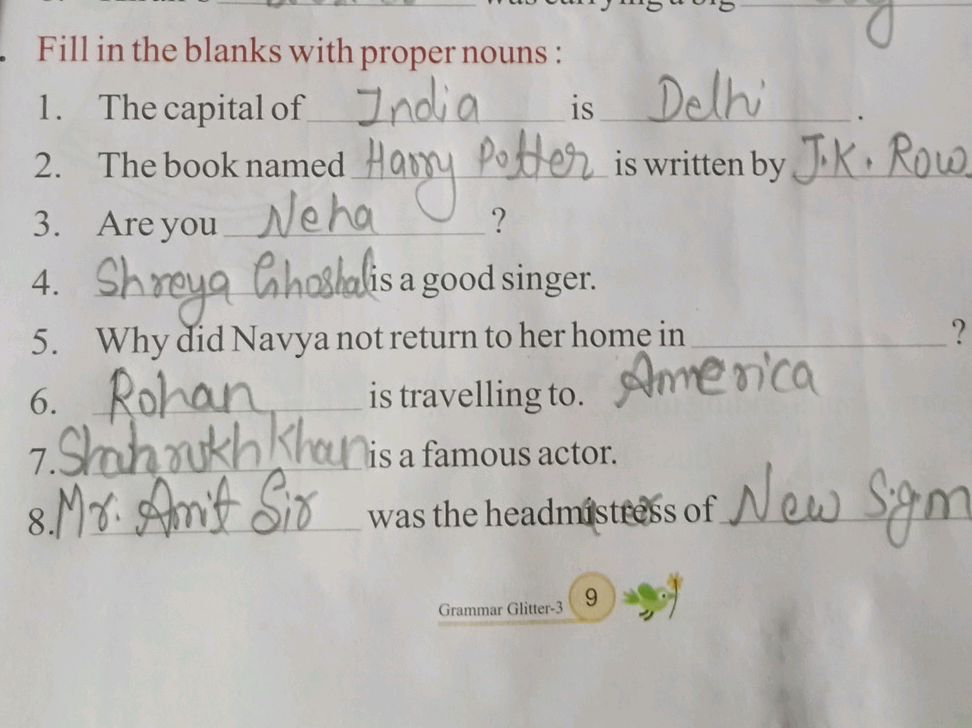 was carrying a big
Fill in the blanks with proper nouns :
1. The capital of India is Delhi .
2. The book named Harry Potter is written by J.K. Row
3. Are you Neha ?
4. Shreya Ghoshal is a good singer.
5. Why did Navya not return to her home in ?
6. Rohan is travelling to. America
7. Shahrukh Khan is a famous actor.
8. Mr. Amit Sir was the headmistress of New Sgm
Grammar Glitter-3 9